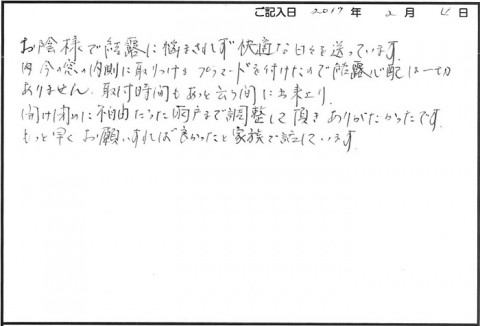 ご記入日 2017年 2月 4日
お陰様で結露に悩まされず快適な日々を送っています。
今の窓の内側に取りつけるプラマードを付けたので結露の心配は一切
ありません。取付時間もあっと云う間に出来上り、
開け閉めに不自由だった雨戸まで調整して頂きありがたかったです。
もっと早くお願いすれば良かったと家族で話しています。